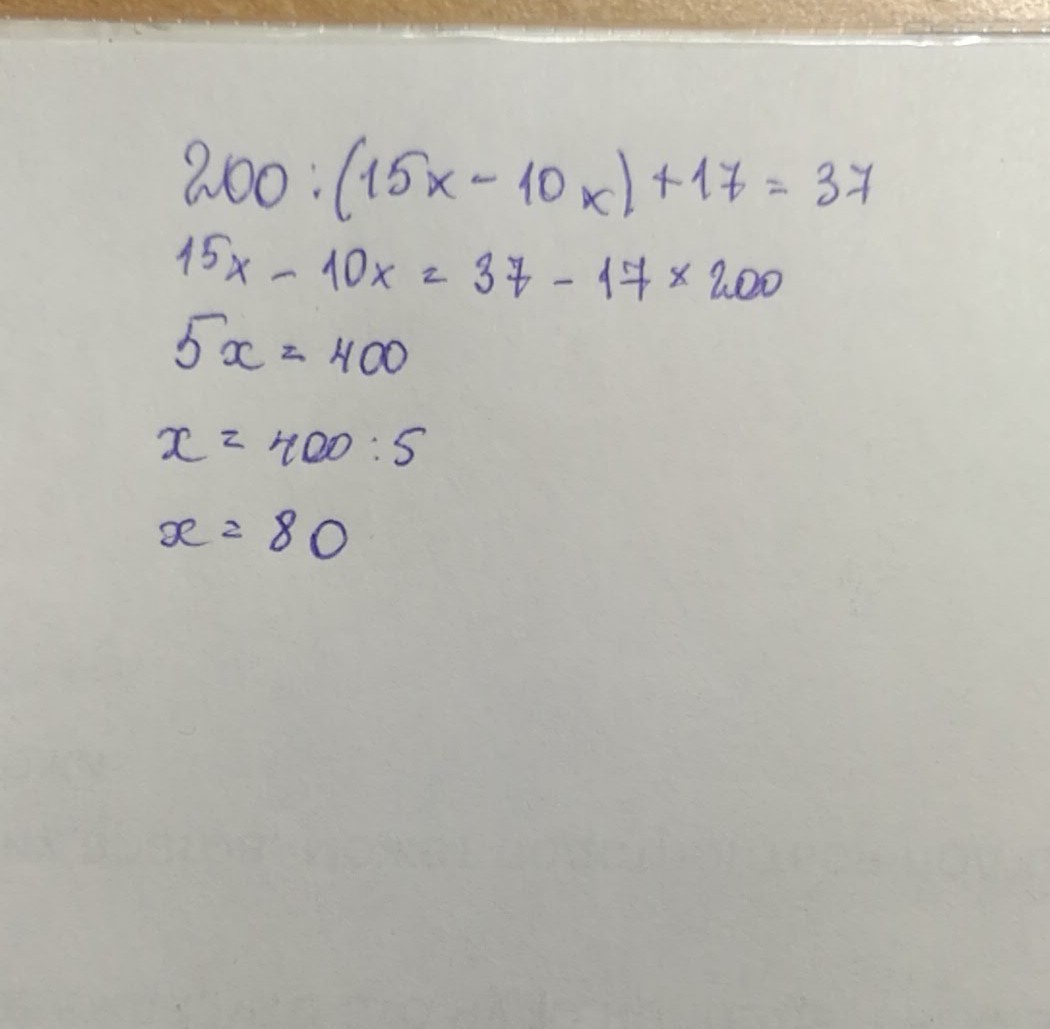 200 : (15x - 10x) + 17 = 37
15x - 10x = 37 - 17 × 200
5x = 400
x = 400 : 5
x = 80